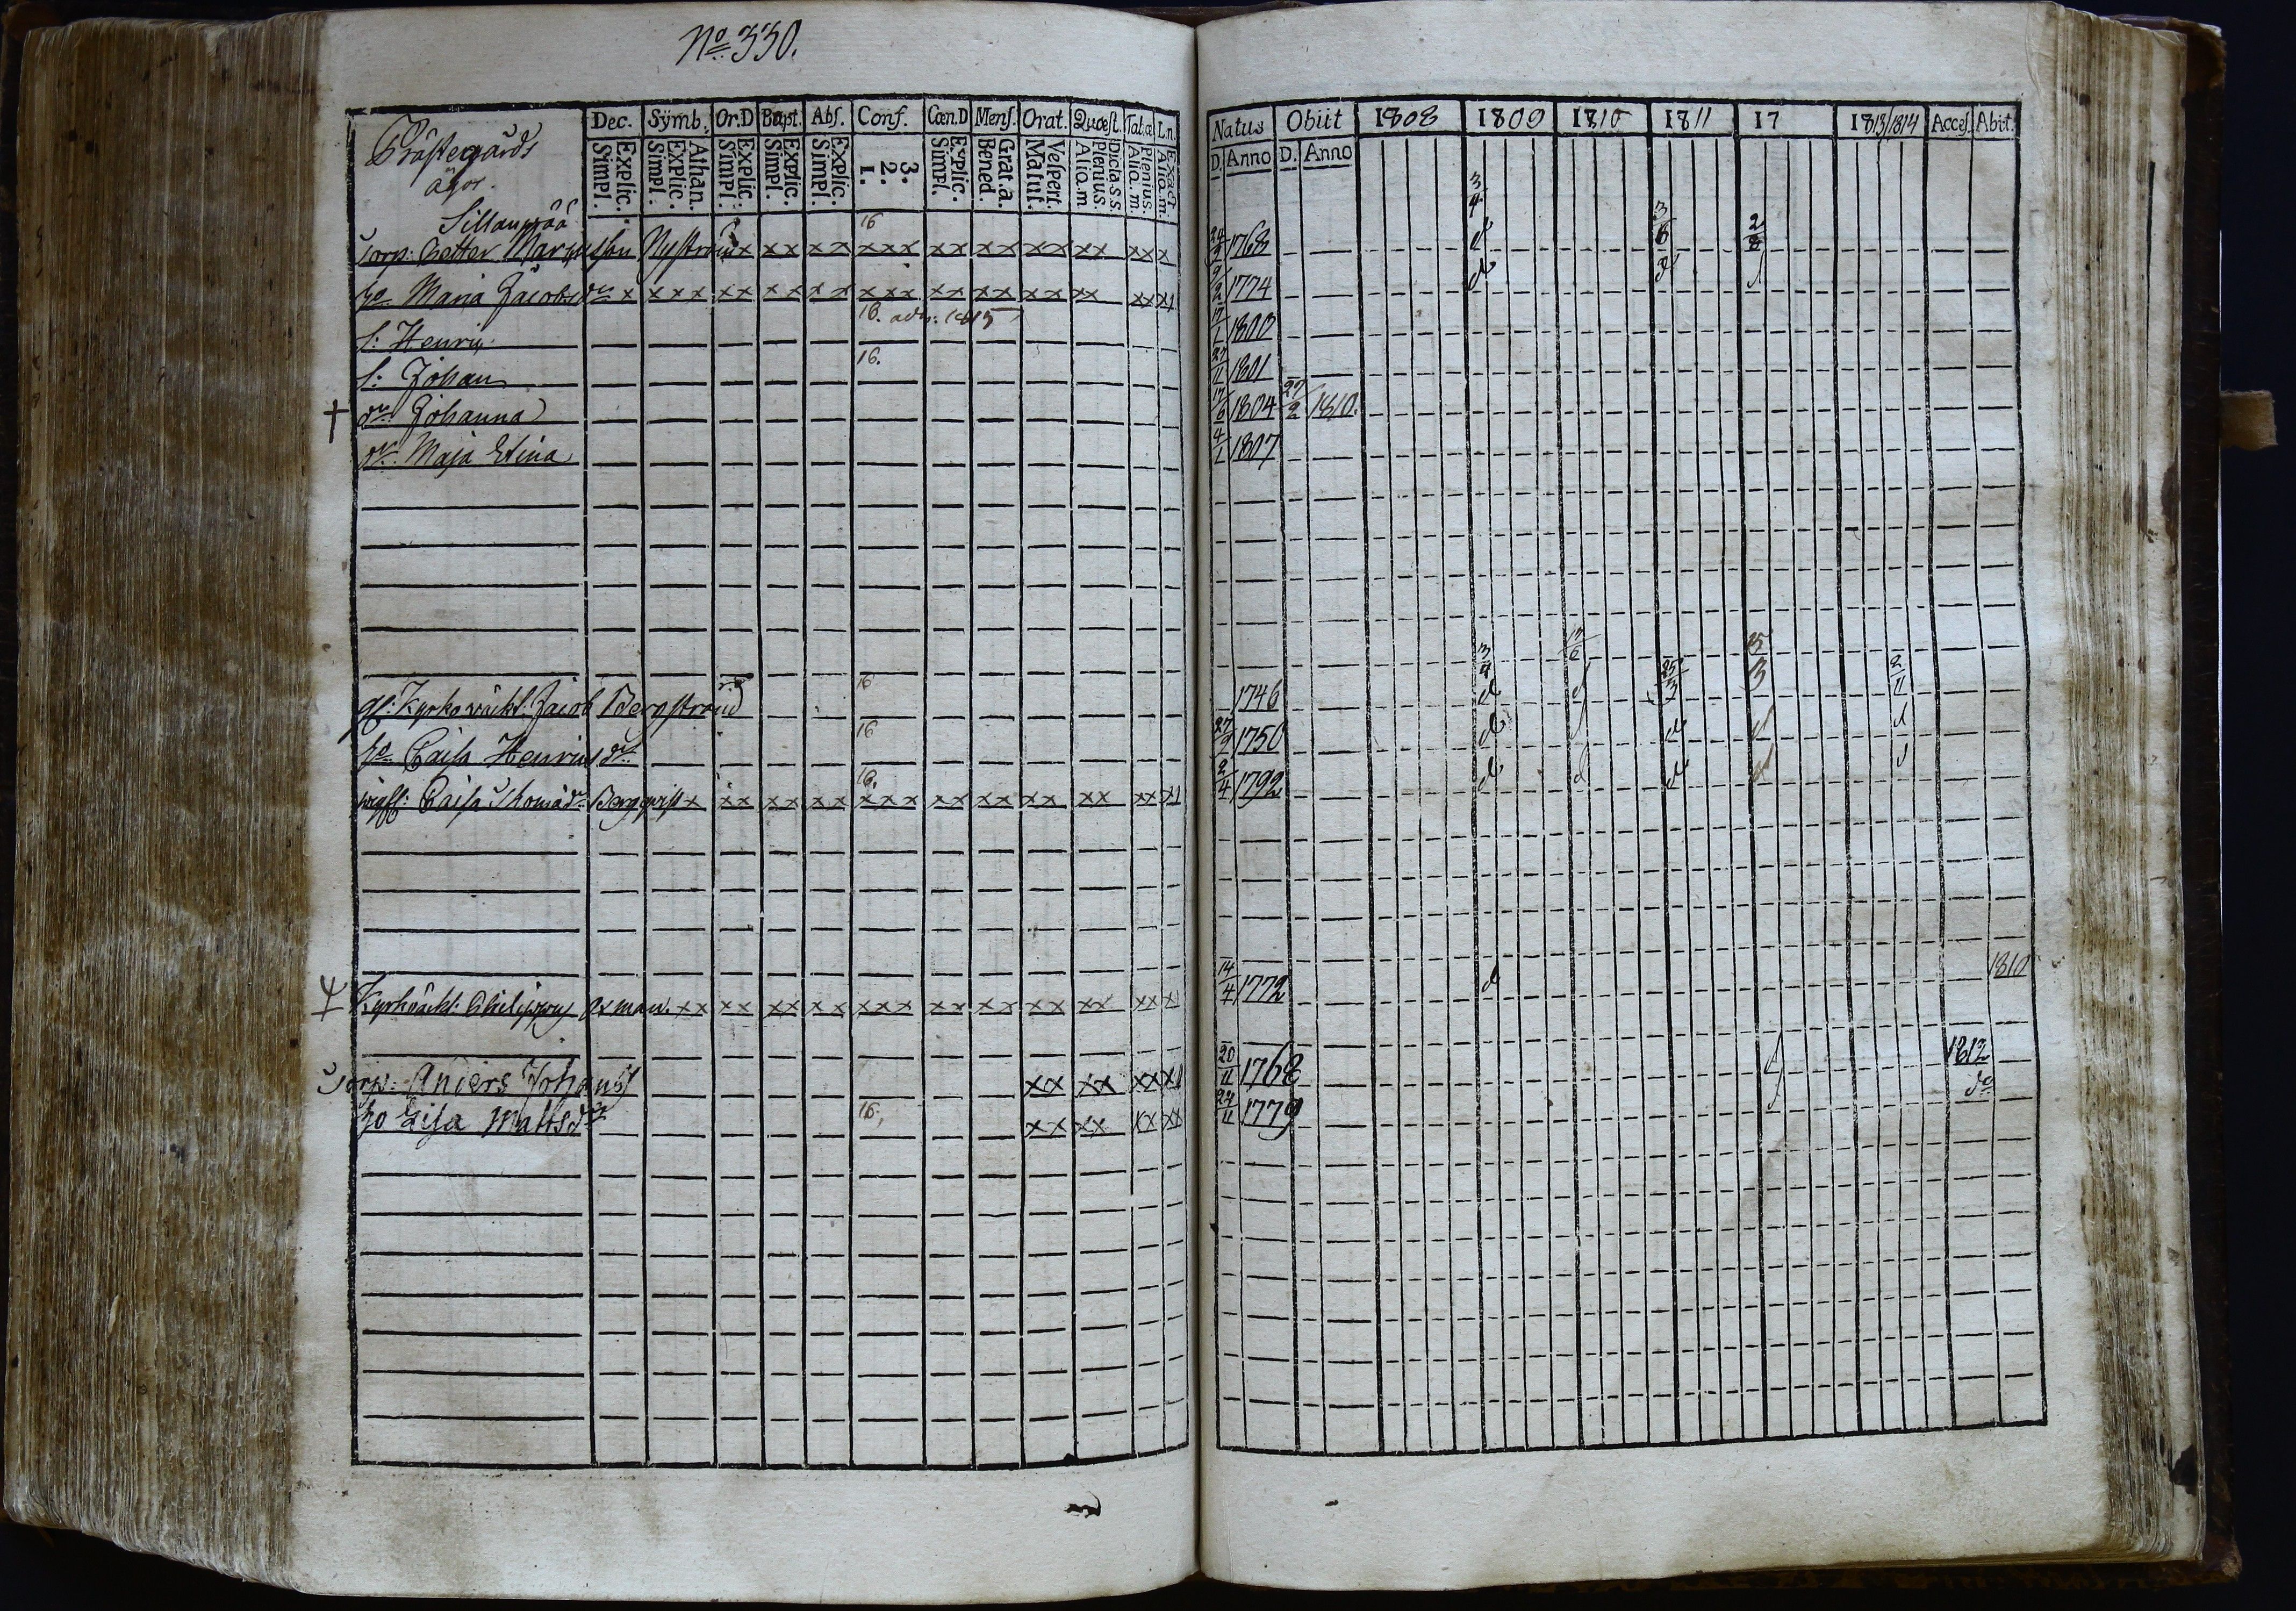 No 330.
Dec. Symb. Or.D Bapt. Abs. Conf. Cœn.D Mens. Orat. Quæst. Tab.æ L.n.
Explic. Simpl. Athan. Explic. Simpl. Explic. Simpl. Explic. Simpl. Explic. Simpl. 3. 2. 1. Explic. Simpl. Grat.a. Bened. Vespert. Matut. Plenius. Aliq.m. Plenius. Aliq.m. Exact. Aliq.m.
Natus Obiit 1808 1809 1810 1811 17 1813/1814 Acces. Abit.
D. Anno D. Anno
Prästegårds
ägor.
Sillanpää 16
Torp: Petter Nyström x xx xx xxx xx xx xx xx xx x 24 1768 3/4 d 3/6 2/8
ho Maria Jacobsdr x xxx xx xx xx xxx xx xx xx xx xx x1 9/2 1774 d d d
S: Henric 16. adm: 1815 17/1 1800
S: Johan 16. 27/11 1801
† dr Johanna 17/6 1804 27/2 1810.
dr Maja Stina 4/1 1807
gl: Kyrkowäckt: Jacob Bergström 16 1746 3/4 d 17/6 d 25/3 25 3 2/11
ho Caisa Henricsdr 16 27/2 1750 d d d d d
Caisa Thomadr Bergqvist x xx xx xx xxx xx xx xx xx xx x1 16. 2/4 1792 d d d d d
Kyrkwäckt: Philippus Oxman. xx xx xx xx xxx xx xx xx xx xx x1 14/4 1772 d 1810
Torp: Anders Johanss xx xx xx x1 20/11 1768 d 1812
ho Lisa Mattsdr 16. xx xx xx xx 24/11 1779 d do